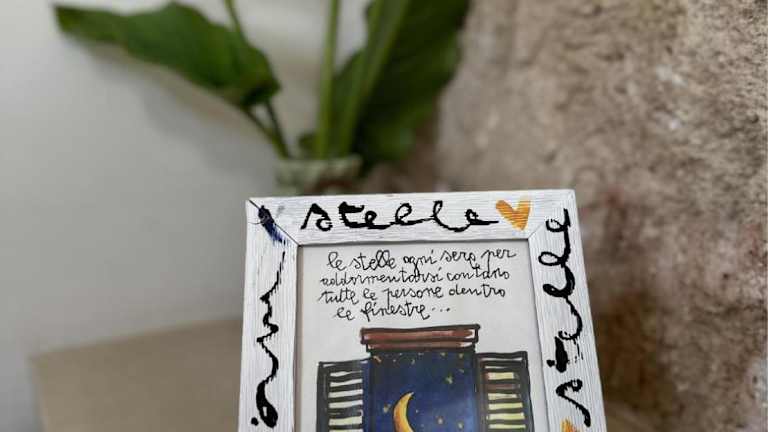 stelle
le stelle ogni sera per
addormentarsi contano
tutte le persone dentro
le finestre...
stelle